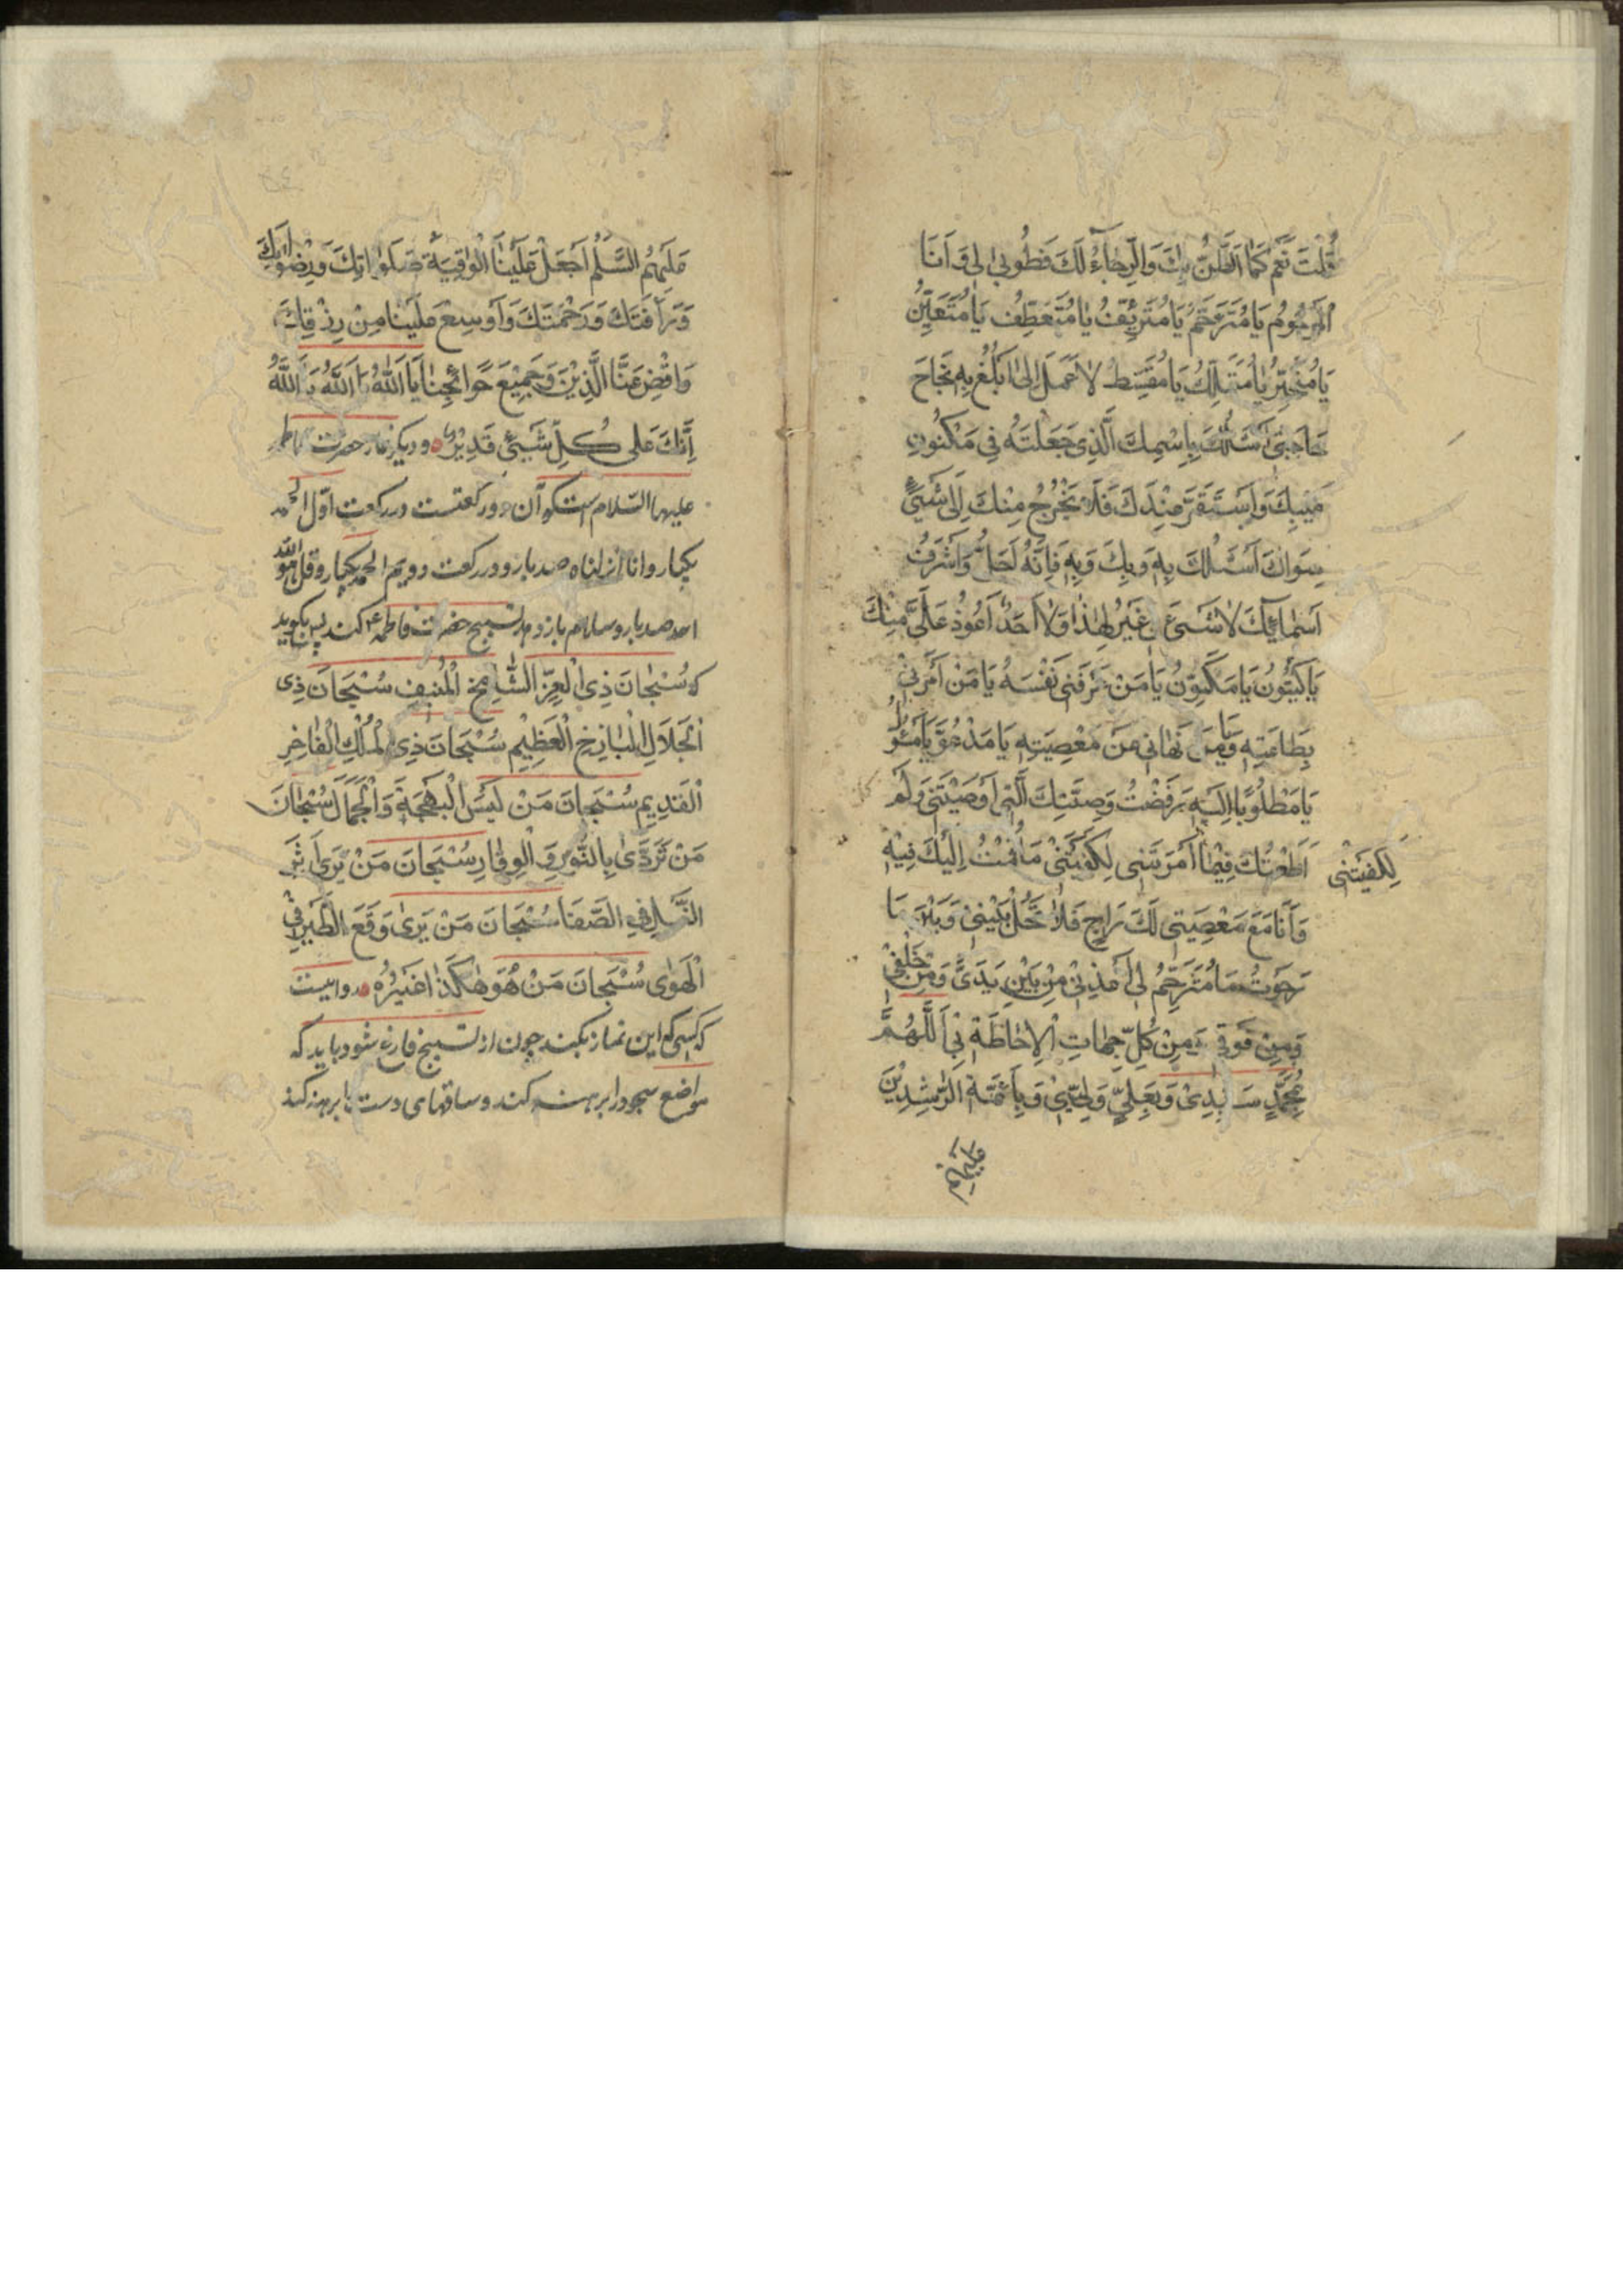 قُلْتَ نَعَمْ كَمَا الظَّنُّ بِكَ وَالرَّجَآءُ لَكَ فَطُوبٰى لِى وَ اَنَا
الْمَرْحُومُ يَا مُتَرَحِّمُ يَا مُتَرَئِّفُ يَا مُتَعَطِّفُ يَا مُتَحَنِّنُ
يَا مُتَجَبِّرُ يَا مُتَمَلِّكُ يَا مُقْسِطُ لاَ عَمَلَ لِى اَبْلُغُ بِهِ نَجَاحَ
حَاجَتِى اَسْئَلُكَ بِاِسْمِكَ الَّذِى جَعَلْتَهُ فِى مَكْنُونِ
غَيْبِكَ وَاسْتَقَرَّ عِنْدَكَ فَلاَ يَخْرُجُ مِنْكَ اِلَى شَيْئٍ
سِوَاكَ اَسْئَلُكَ بِهِ وَ بِكَ وَ بِهِ فَاِنَّهُ اَجَلُّ وَ اَشْرَفُ
اَسْمَائِكَ لاَ شَيْئَ غَيْرُ هٰذَا وَلاَ اَحَدٌ اَعْوَدُ عَلَىَّ مِنْكَ
يَا كَيْنُونُ يَا مُكَوِّنُ يَا مَنْ عَرَّفَنِى نَفْسَهُ يَا مَنْ اَمَرَنِى
بِطَاعَتِهِ وَ يَا مَنْ نَهَانِى عَنْ مَعْصِيَتِهِ يَا مَدْعُوُّ يَا مَسْئُولُ
يَا مَطْلُوبًا اِلَيْهِ رَفَضْتُ وَصِيَّتَكَ الَّتِى اَوْصَيْتَنِى وَلَمْ
اَطَعْتُكَ فِيْمَا اَمَرْتَنِى لِكَفَيْتَنِى مَا قُمْتُ اِلَيْكَ فِيْهِ
لِكَفَيْتَنْى
وَ اَنَا مَعَ مَعْصِيَتِى لَكَ رَاجٍ فَلاَ تَحُلْ بَيْنِىْ وَ بَيْنَ مَا
رَجَوْتُ يَا مُتَرَحِّمُ لِى اَعِذْنِىْ مِنْ بَيْنِ يَدَىَّ وَ مِنْ خَلْفِىْ
وَ مِنْ فَوْقِى وَ مِنْ كُلِّ جِهَاتِ الْاِحَاطَةِ بِى اَللّٰهُمَّ
بِمُحَمَّدٍ سَيِّدِىْ وَ بِعَلِىٍّ وَلِيّى وَ بِاَئِمَّةِ الرَّاشِدِيْنَ
عليهم
عَلَيْهِمُ السَّلٰمُ اجْعَلْ عَلَيْنَا صَلَوَاتِكَ وَ رِضْوَانَكَ
وَ رَاْفَتَكَ وَ رَحْمَتَكَ وَ اَوْسِعْ عَلَيْنَا مِنْ رِزْقِكَ
وَ اقْضِ عَنَّا الدَّيْنَ وَ جَمِيْعَ حَوَائِجِنَا يَا اَللّٰهُ يَا اَللّٰهُ يَا اَللّٰهُ
اِنَّكَ عَلٰى كُلِّ شَيْئٍ قَدِيْرٌ و ديكر نماز حضرت فاطمه
عليها السّلام ست كه آن دو ركعتست در ركعت اوّل الحمد
يكبار و انا انزلناه صد بار و در ركعت دويم الحمد يكبار و قل هو الله
احد صد بار و سلام باز دهد تسبيح حضرت فاطمه ع كند پس بكويد
كه سُبْحَانَ ذِى الْعِزِّ الشَّامِخِ الْمُنِيفِ سُبْحَانَ ذِى
الْجَلَالِ الْبَازِخِ الْعَظِيْمِ سُبْحَانَ ذِى الْمُلْكِ الْفَاخِرِ
الْقَدِيمِ سُبْحَانَ مَنْ لَبِسَ الْبَهْجَةَ وَ الْجَمَالَ سُبْحَانَ
مَنْ تَرَدّٰى بِالنُّورِ وَ الْوِقَارِ سُبْحَانَ مَنْ يَرٰى اَثَرَ
النَّمْلِ فِى الصَّفَا سُبْحَانَ مَنْ يَرٰى وَقَعَ الطَّيْرِ فِى
الْهَوٰى سُبْحَانَ مَنْ هُوَ هٰكَذَا غَيْرُهُ روايست
كه كسى كه اين نماز بكند چون از تسبيح فارغ شود بايد كه
مواضع سجود را برهنه كند و ساقهاى دست را برهنه كند